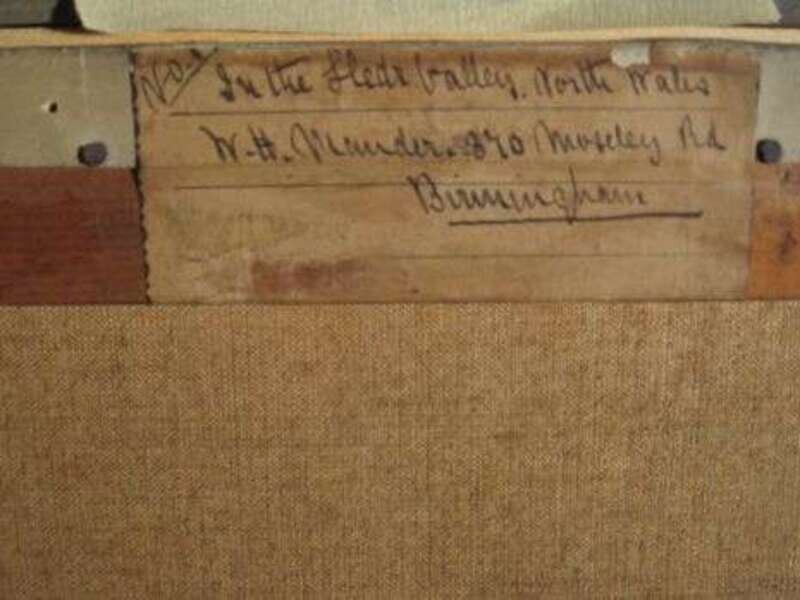 No 2 In the Lledr Valley. North Wales
W. H. Mander. 370 Moseley Rd
Birmingham